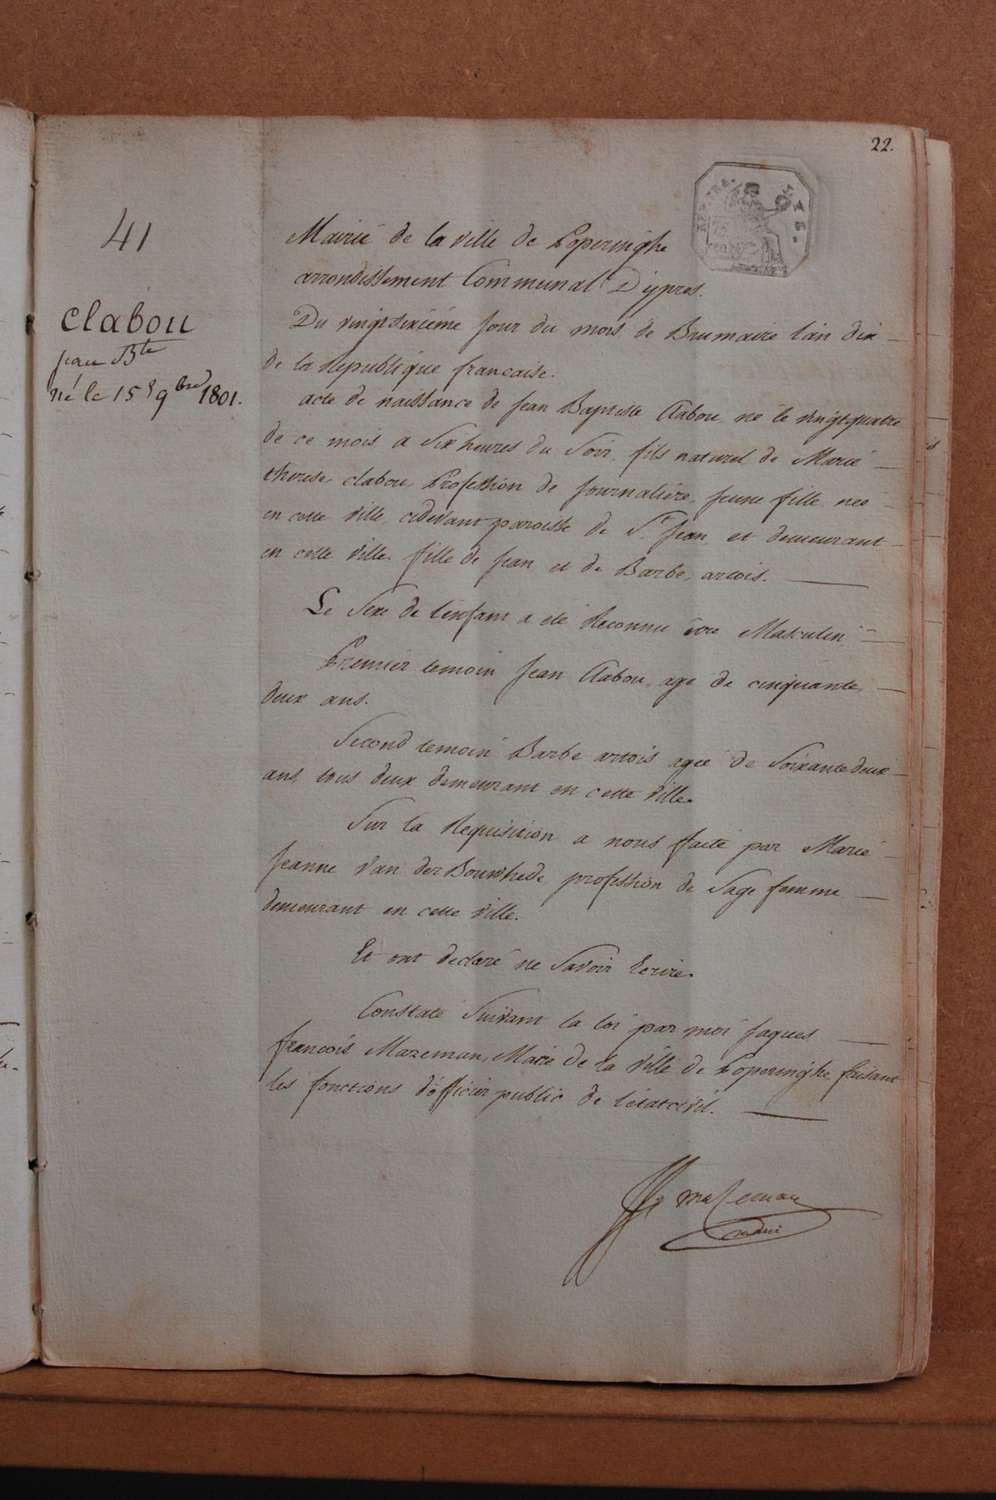 22.
41
Clabou
jean Bte
né le 15 9bre 1801.
Mairié de la ville de Poperinghe
arrondissement Communal D'ypres.
Du vingt sixiéme jour du mois de Brumaire l'an dix
de la République francaise.
acte de naissance de Jean Baptiste Clabou né le vingt quatre
de ce mois a Six heures du Soir, fils naturel de Marié
therese clabou, Profession de journaliere, jeune fille, née
en cette ville, cidevant paroisse de St. Jean, et demeurant
en cette ville fille de Jean et de Barbe, artois.
Le Sexe de l'enfant a été Reconnu étre Masculin
Premier temoin Jean Clabou, agé de cinquante
deux ans.
Second temoin Barbe artois agée de Soixante deux
ans, tous deux demeurant en cette Ville.
Sur la Requisition a nous faite par Marié
Jeanne Van der Bouwhede profession de Sage femme
demeurant en cette Ville.
Et ont declaré ne Savoir Ecrire.
Constaté Suivant la loi par moi Jaques
francois Mazeman, Maire de la Ville de Poperinghe faisant
les fonctions d'officier public de l'état civil.
mazeman
maire